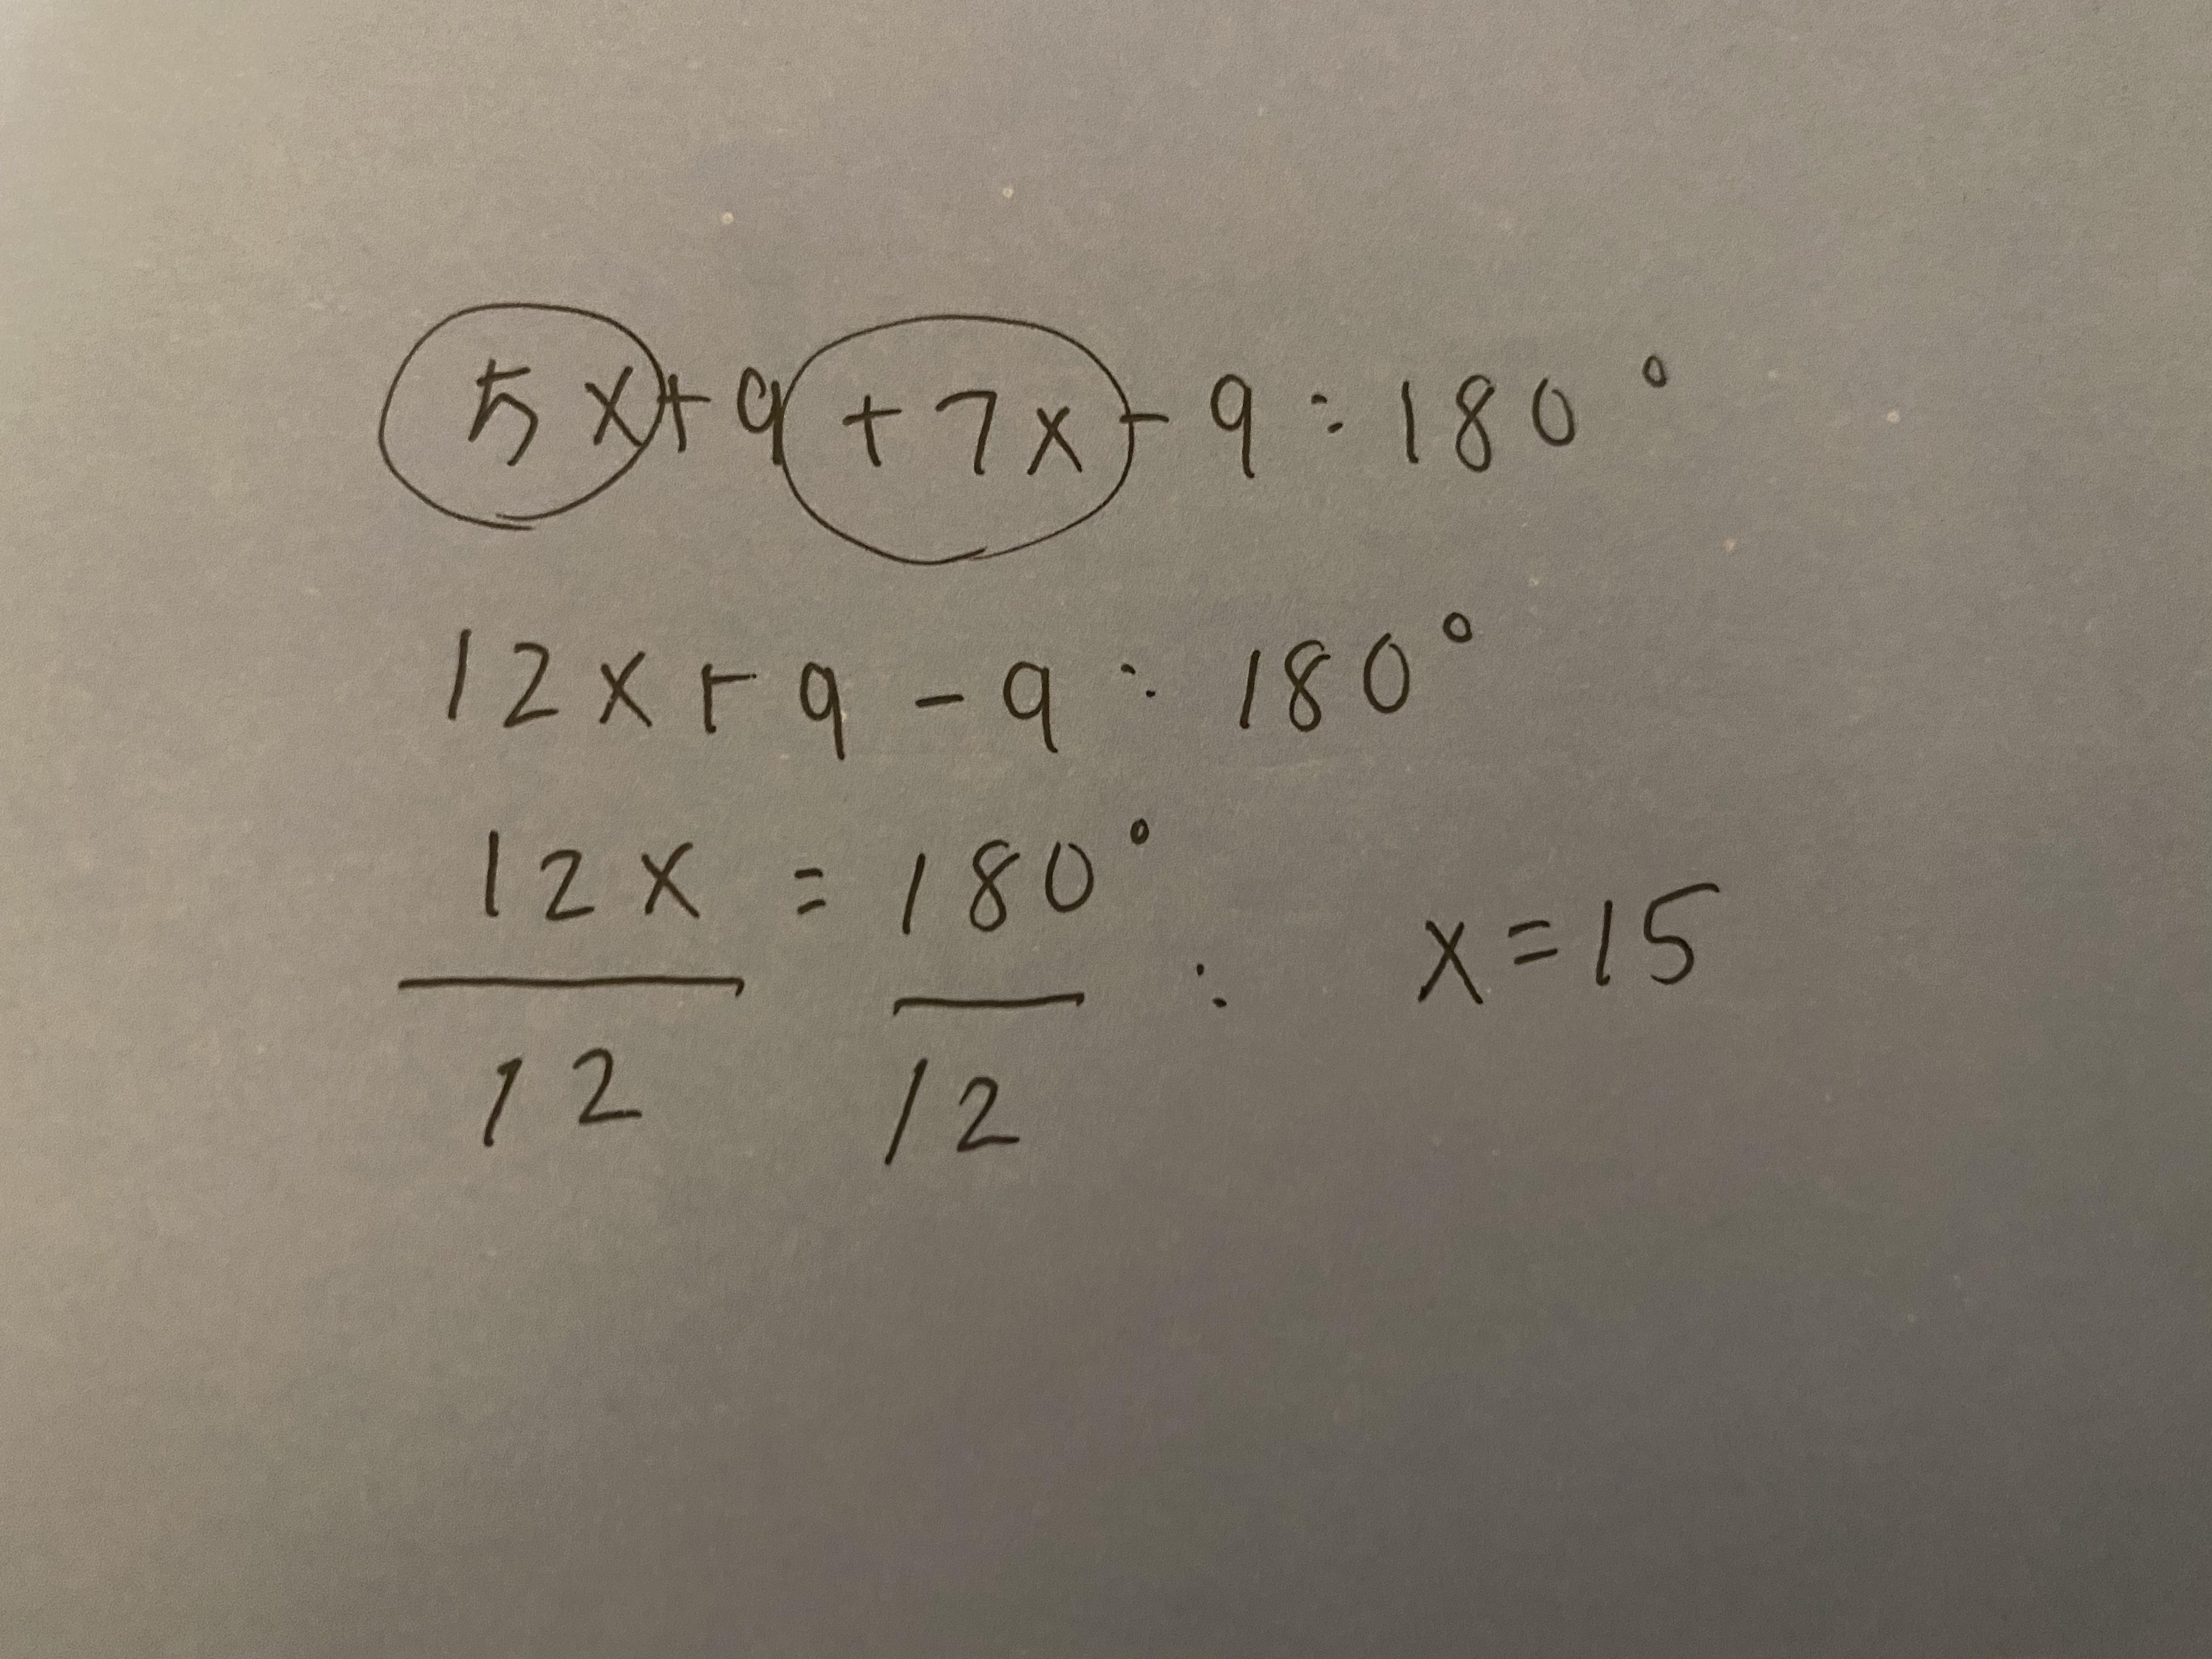 5x+9+7x-9=180°
12x+9-9=180°
12x=180°
12 12 : x=15